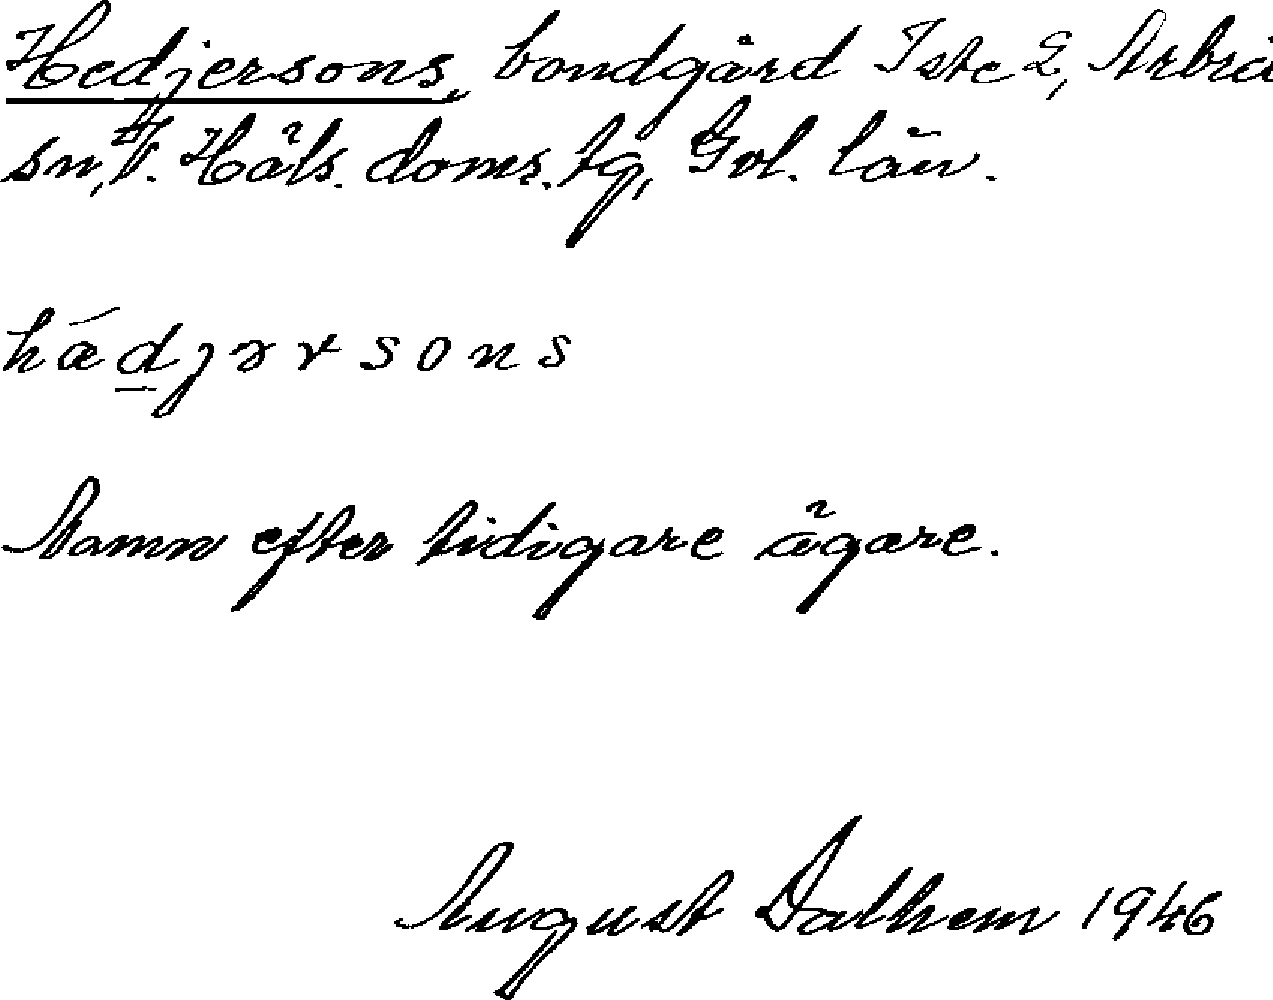 Hedjersons, bondgård Iste 2, Arbrå
sn, V. Häls. doms. tg, Gvl. län.
hǽdjərsons
Namn efter tidigare ägare.
August Dalhem 1946